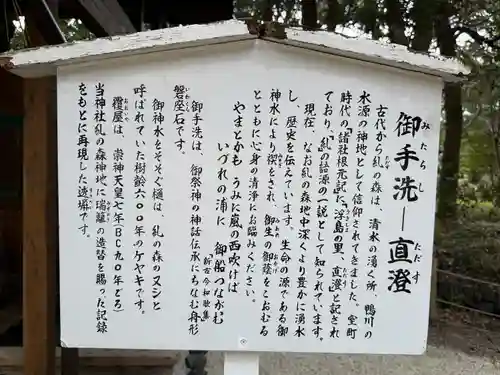 御手洗―直澄
みたらし
ただす
古代から糺の森は、清水の湧く所、鴨川の
水源の神地として信仰されてきました。室町
時代の『諸社根元記』に、「浮島の里、直澄」と記され
ており、『糺』の語源の一説として知られています。
現在、なお糺の森地中深くより豊かに湧水
し、歴史を伝えています。生命の源である御
神水により禊をされ、御生の御蔭をこおむる
とともに心身の清浄にお臨みください。
やまとかも うみに嵐の西吹けば
いづれの浦に 御船つながむ
新古今和歌集
御手洗は、御祭神の神話伝承にちなむ舟形
磐座石です。
いわくら
御神水をそそぐ樋は、糺の森のヌシと
呼ばれていた樹齢六〇〇年のケヤキです。
覆屋は、崇神天皇七年(BC九〇年どろ)
おおいや
当神社糺の森神地に瑞籬の造替を賜った記録
をもとに再現した造塀です。